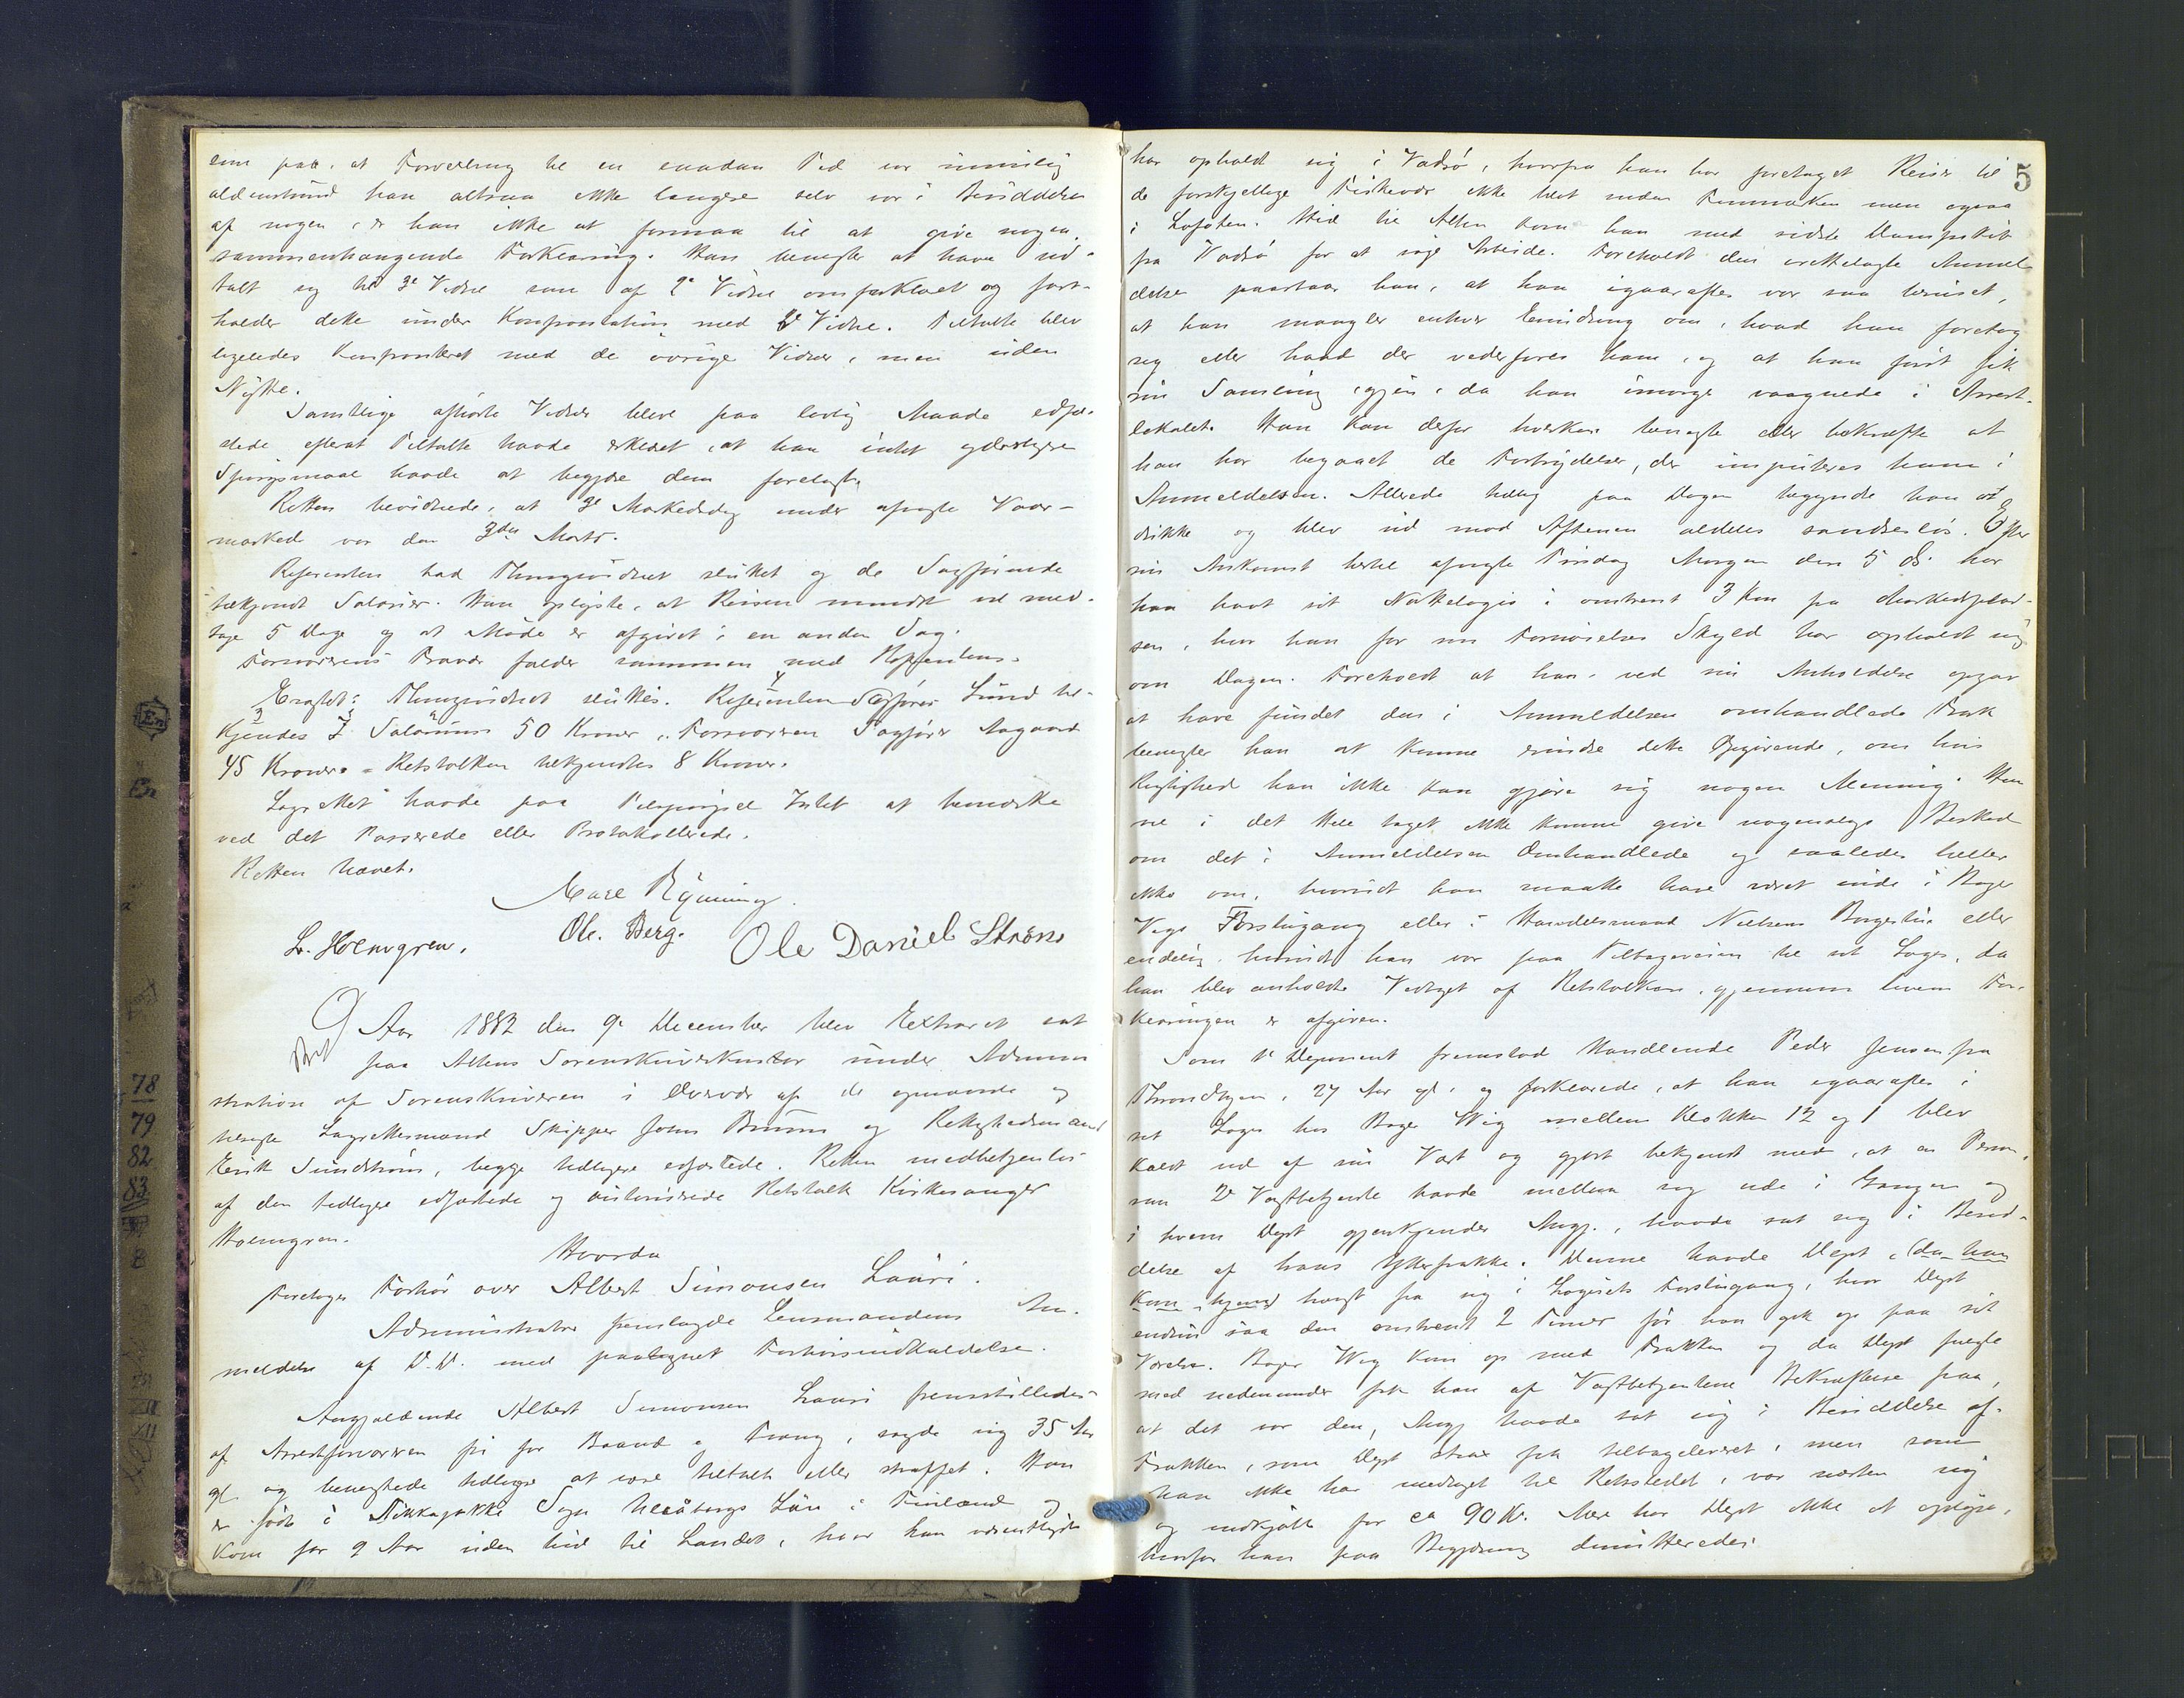 som paa, at Forvexling til en saadan Tid var umulig
aldenstund han altsaa ikke længere selv var i Besiddelse
af nogen, er han ikke at formaa til at give nogen
sammenhængende Forklaring. Han benegter at have ud-
talt sig til 3e Vidne som af 2e Vidne omforklaret og fast-
holder dette under Konfrontation med 2e Vidne. Tiltalte blev
ligeledes konfronteret med de øvrige Vidner, men uden
Nytte.
Samtlige afhørte Vidner bleve paa lovlig Maade edfæ-
stede efterat Tiltalte havde erklæret, at han intet yderligere
Spørgsmaal havde at begjære dem forelagt.
Retten bevidnede, at 3e Markedsdag under afvigte Vaar-
marked var den 3die Marts.
Referenten bad Thingsvidnet sluttet og de Sagførende
tilkjendt Salærer. Han oplyste, at Reisen mindst vil med-
tage 5 Dage og at Møde er afgivet i en anden Sag.
Forsvarerens Fravær falder sammen med Referentens.
Eragtet: Thingsvidnet sluttes. Referenten Sagfører Lund til-
kjendes i Salærium 50 Kroner, Forsvareren Sagfører Aagaard
45 Kroner. Retstolken tilkjendtes 8 Kroner.
Lagrettet havde paa Tilspørgsel Intet at bemærke
ved det Passerede eller Protokollerede.
Retten hævet.
Ryning.
L. Holmgren. Ole. Berg. Ole Daniel Strøm
Aar 1882 den 9e December blev Extraret sat
paa Altens Sorenskriverkontor under Admini
stration af Sorenskriveren i Overvær af de opnævnte og
tilsagte Lagrettesmænd Skipper Johs Bruun og Rettighedsmand
Erik Sundstrøm, begge tidligere edfæstede. Retten medbetjentes
af den tidligere edfæstede og autoriserede Retstolk Kirkesanger
Holmgren.
Hvorda
Foretoges Forhør over Albert Simonsen Lauri.
Administrator fremlagde Lensmandens An-
meldelse af D.D. med paategnet Forhørsindkaldelse.
Angjældende Albert Simonsen Lauri fremstilledes
af Arrestforvareren fri for Baand og Tvang, sagde sig 35 Aar
gl. og benegtede tidligere at være tiltalt eller straffet. Han
er født i Sogn Uleåborgs Län i Finland og
kom for 9 Aar siden hid til Landet, hvor han væsentligst
5
har opholdt sig i Vadsø, hvorfra han har foretaget Reiser til
de forskjellige Fiskevær ikke blot inden Finmarken men ogsaa
i Lofoten. Hid til Alten kom han med sidste Dampskib
fra Vadsø for at søge Arbeide. Foreholdt den irettelagte Anmel-
delse paastaar han, at han igaaraftes var saa beruset,
at han mangler enhver Erindring om, hvad han foretog
sig eller hvad der vederfores ham, og at han først fik
sin Samling igjen, da han imorges vaagnede i Arrest-
lokalet. Han kan derfor hverken benegte eller bekræfte at
han har begaaet de Forbrydelser, der imputeres ham i
Anmeldelsen. Allerede tidlig paa Dagen begyndte han at
drikke og blev ud mod Aftenen aldeles sandsesløs. Efter
sin Ankomst hertil afvigte Tirsdag Morgen den 5 ds. har
han havt sit Natelogis i omtrent 3 Km fra Markedsplad-
sen, hvor han for sin Fornøielses Skyld har opholdt sig
om Dagen. Foreholdt at han ved sin Anholdelse opgav
at have fundet den i Anmeldelsen omhandlede Frak
benegter han at kunne erindre dette Opgivende, om hvis
Rigtighed han ikke kan gjøre sig nogen Mening. Han
vil i det Hele taget ikke kunne give nogensomhelst Besked
om det i Anmeldelsen Omhandlede og saaledes heller
ikke om, hvorvidt han maatte have været inde i Bager
Vigs Forstugang eller i Handelsmand Nielsens Borgestue eller
endelig hvorvidt han var paa Tilbageveien til sit Logis, da
han blev anholdt. Vedtaget af Retstolken, gjennem hvem For-
klaringen er afgiven.
Som 1e Deponent fremstod Handlende Peder Jensen fra
Throndhjem, 27 Aar gl. og forklarede, at han igaaraftes i
sit Logis hos Bager Wig mellem Klokken 12 og 1 blev
kaldt ud af sin Vært og gjort bekjendt med, at en Person,
som 2e Vagtbetjente havde mellem sig ude i Gangen og
i hvem Dept gjenkjender Angj., havde sat sig i Besid-
delse af hans Ytterfrakke. Denne havde Dept, (da han
kom hjem) hængt fra sig i Logiets Forstugang, hvor Dept
endnu saa den omtrent 2 Timer før han gik op paa sit
Værelse. Bager Wig kom op med Frakken og da Dept fulgte
med nedenunder fik han af Vagtbetjentene Bekræftelse paa,
at det var den, Angj havde sat sig i Besiddelse af.
Frakken, som Dept strax fik tilbageleveret, men som
han ikke har medtaget til Retsstedet, var næsten ny
og indkjøbt for ca 90 Kr. Mere har Dept ikke at oplyse,
hvorfor han paa Begjæring dimitteredes.